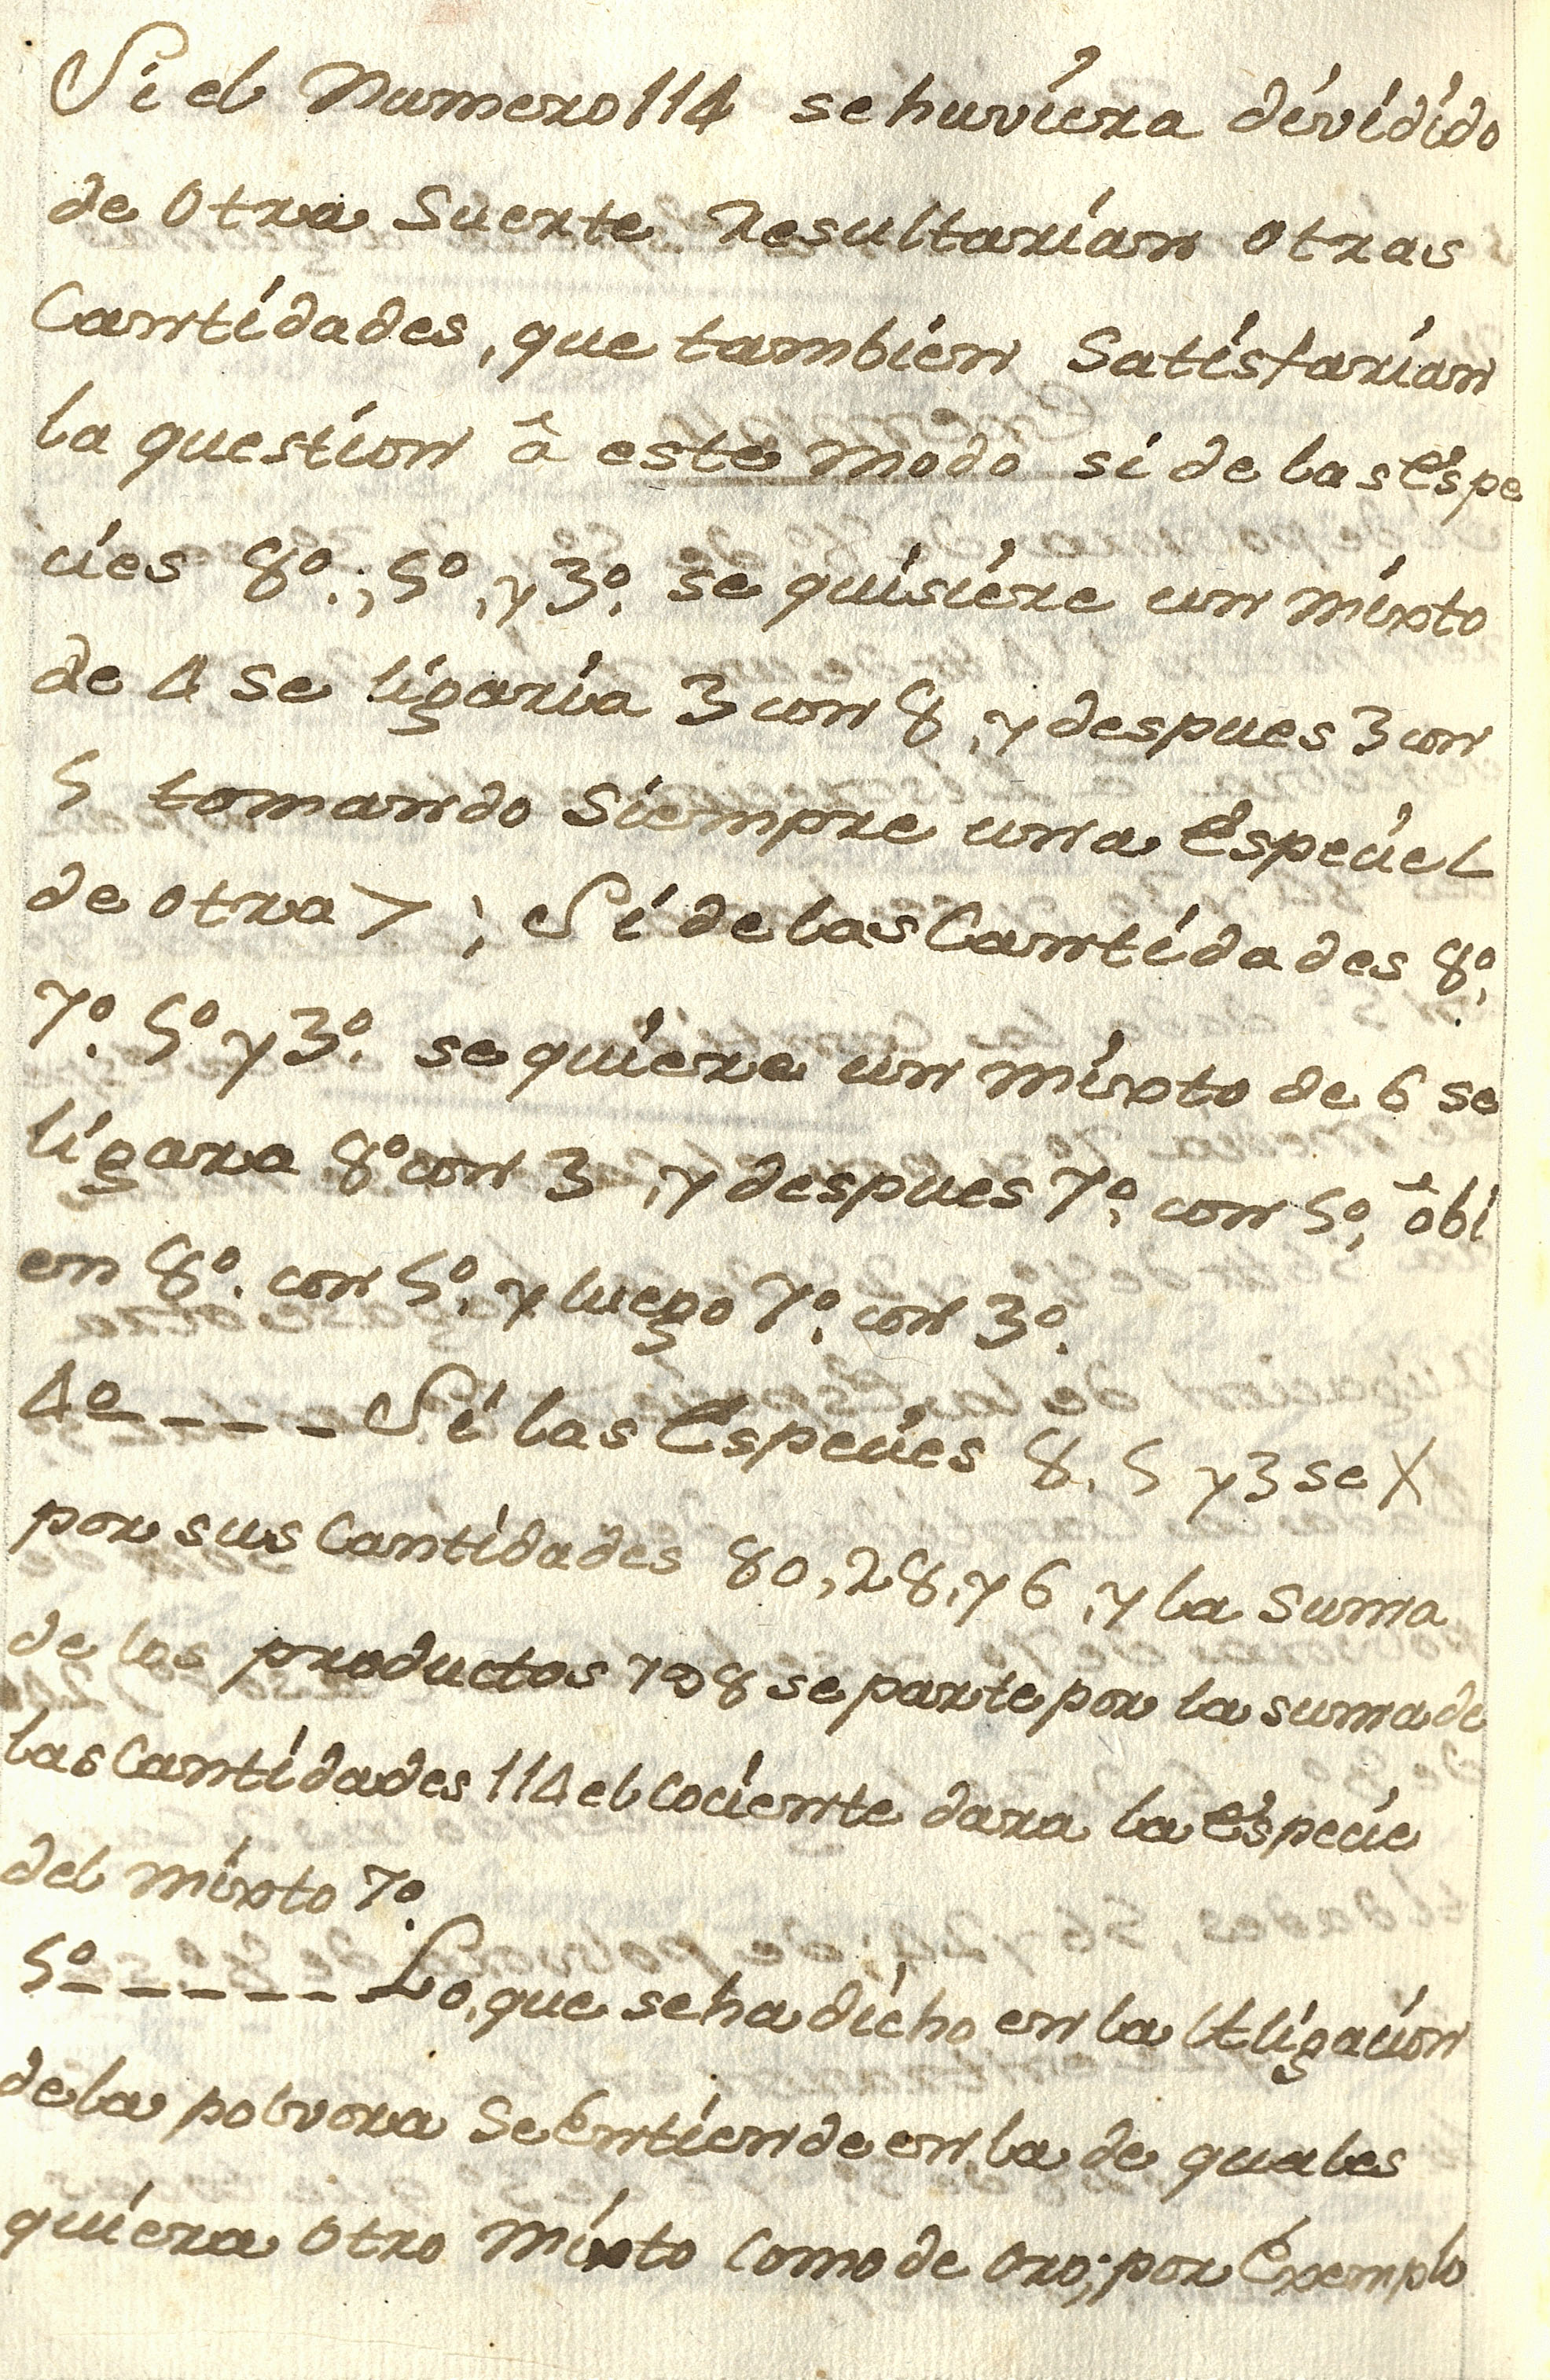 Si el Numero 114 se huviera dividido
de Otra Suerte Resultarian otras
Cantidades, que tambien Satisfarian
la question â este modo si de las Espe
cies 8º.; 5º, y 3º. se quisiere un mixto
de 4 se ligaria 3 con 8, y despues 3 con
5 tomando Siempre una Especie <
de otra >; Si de las Cantidades 8º,
7º. 5º y 3º. se quiere un mixto de 6 se
ligara 8º con 3, y despues 7º, con 5º, ôbi
en 8º. con 5º, y luego 7º, con 3º.
4º---- Si las Especies 8, 5 y 3 se X
por sus Cantidades 80, 28, y 6, y la Suma
de los productos 798 se parte por la suma de
las Cantidades 114 el Cociente dara la Especie
del mixto 7º.
5º------ Lo, que se ha dicho en la Aligacion
de la polvora Se Entiende en la de quales
quiera Otro Mixto Como de Oro; por Exemplo